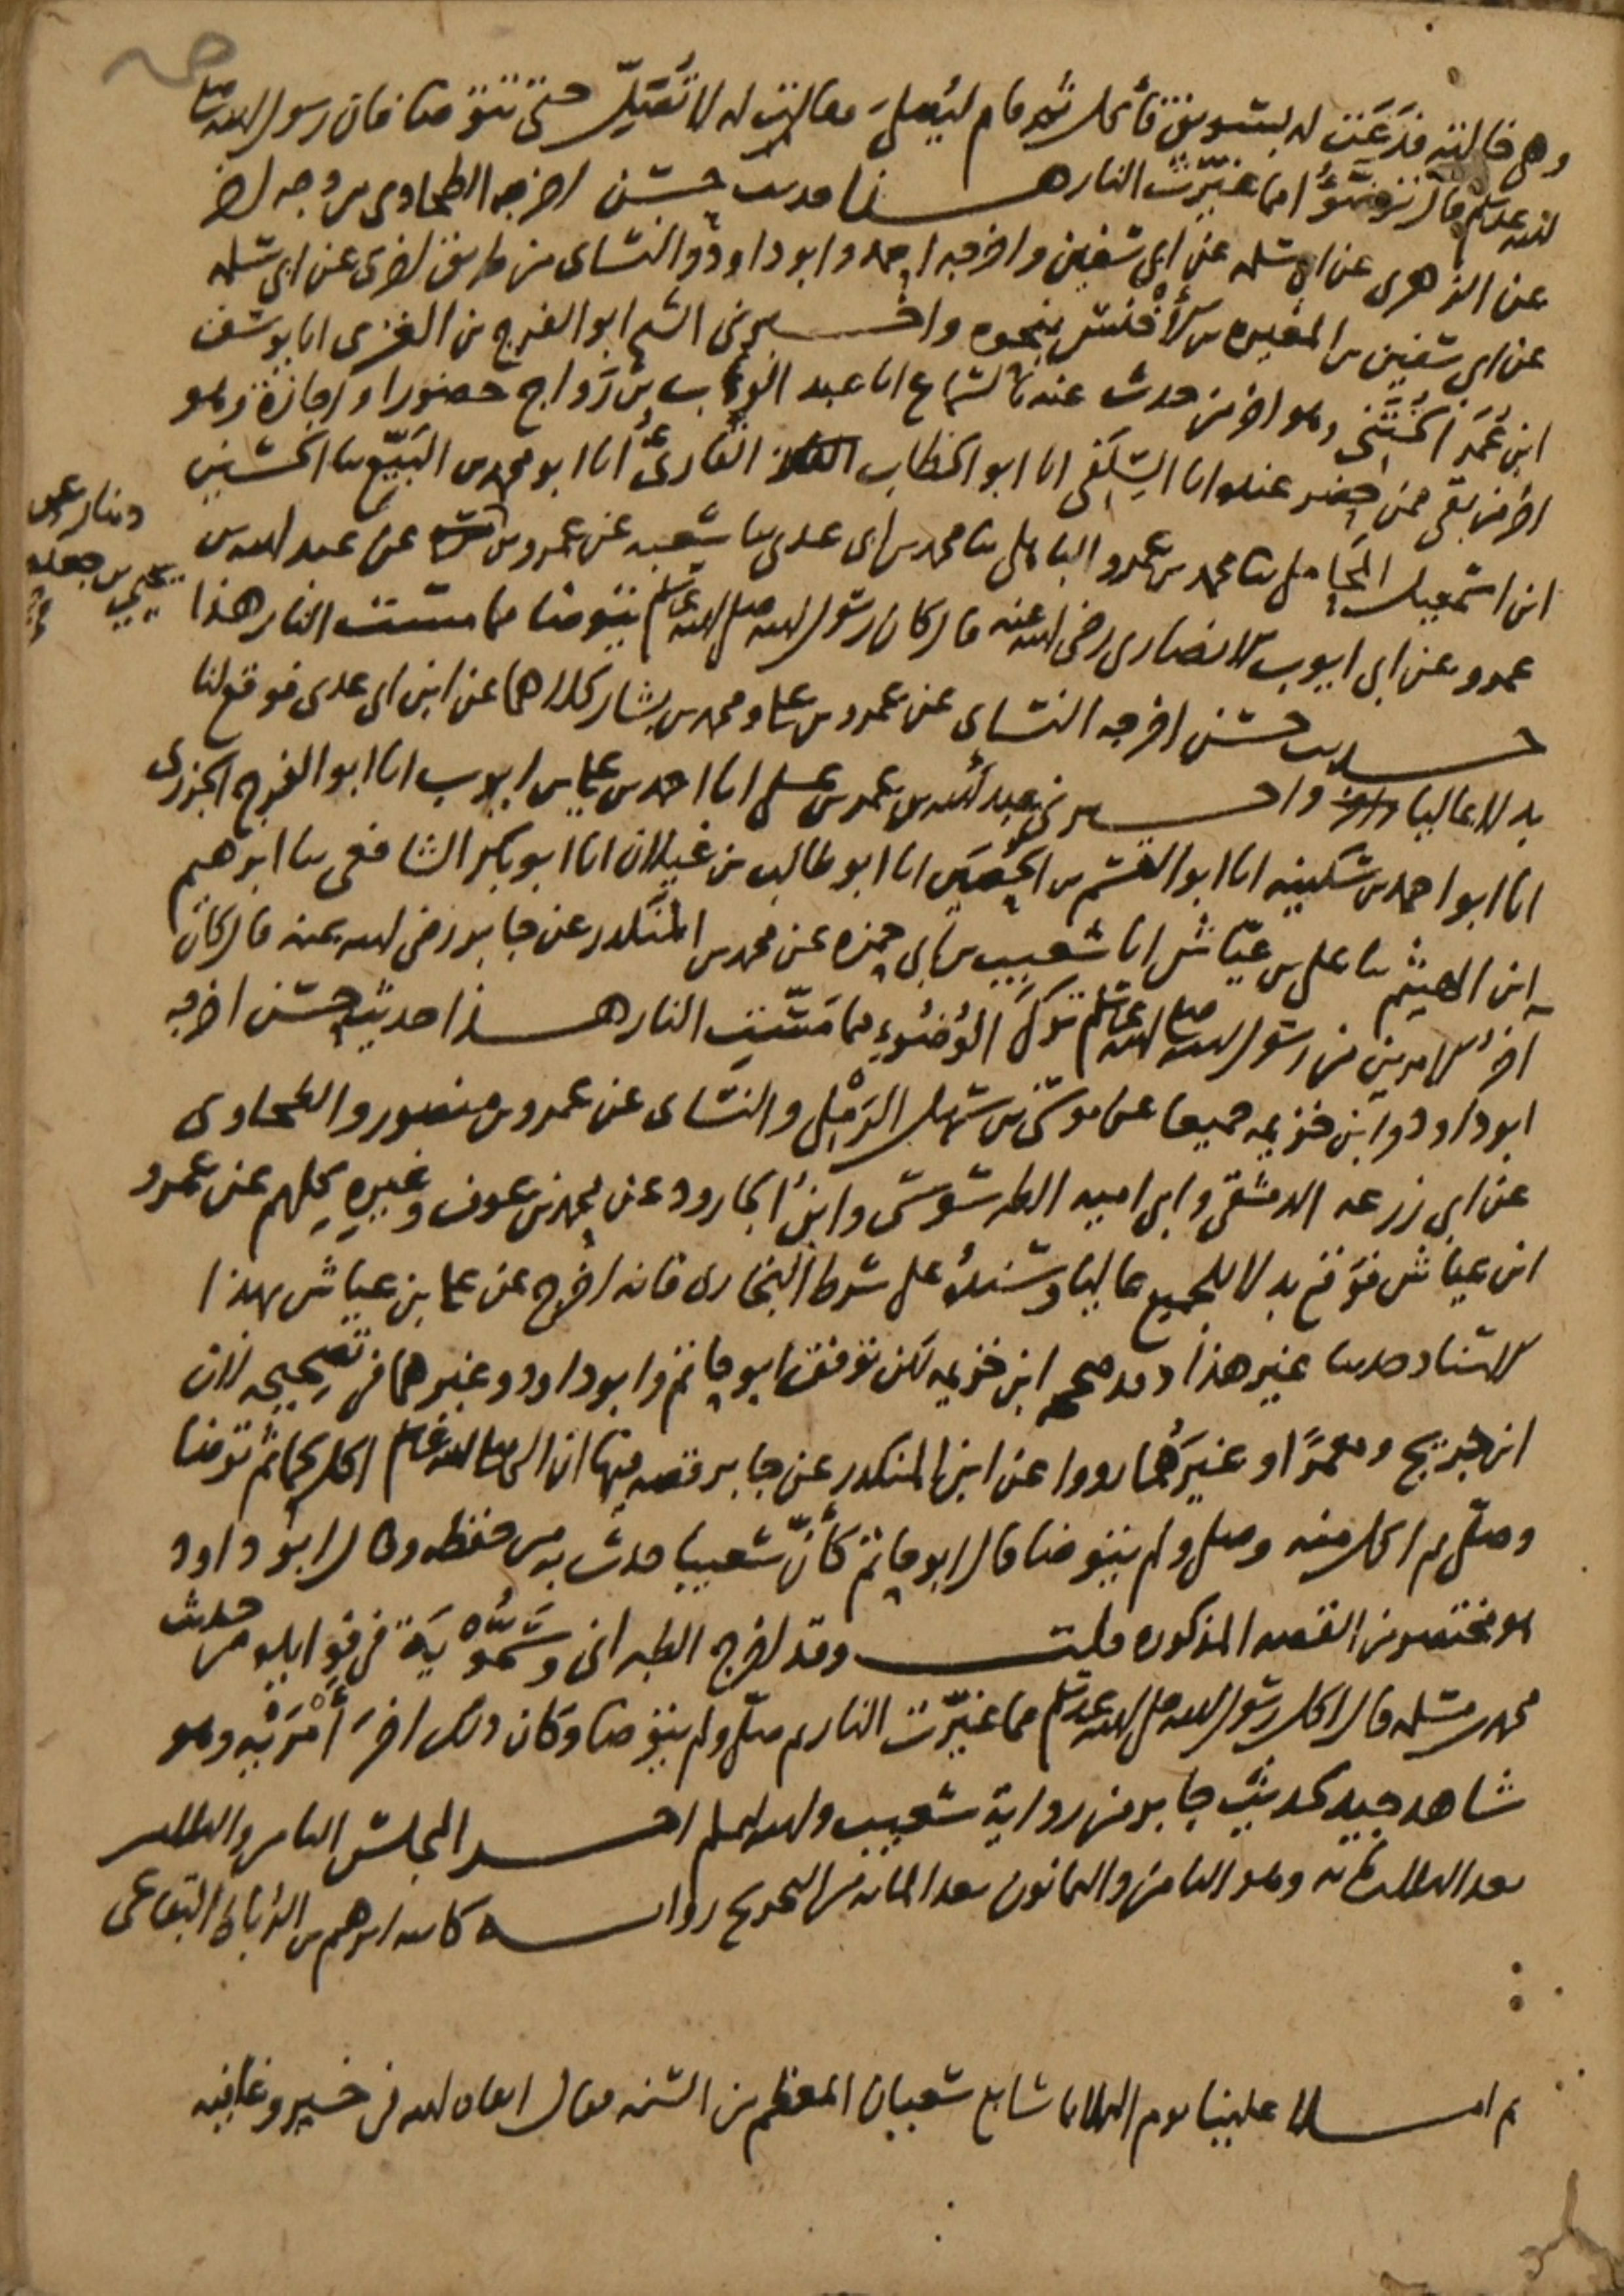 وهي خالته فدعت له بسويق فأكل ثم قام ليصلي فقالت له لا تُصَلِّ حتى تتوضا فان رسول الله صلى
الله عليه وسلم قال توضؤا مما غيّرت النار هذا حديث حسن اخرجه الطحاوي من وجه اخر
عن الزهري عن ابي سلمه عن ابي سفين واخرجه احمد وابو داود والنساى من طريق اخرى عن ابي سلمه
عن ابي سفين بن المغيره بن الأخنس بنحوه واخبرني الشيخ ابو الفرج بن الغزى انا يوسف
ابن عُمَر الخُتَنى وهو اخر من حدث عنه بالسماع انا عبد الوهاب بن رَوَاج حضورا واجازة وهو
اخر من بقي ممن حضر عنده انا السِّلَفى انا ابو الخطاب القارئ انا ابو محمد بن البَيِّع ثنا الحسين
ابن اسمعيل المحاملى ثنا محمد بن عمرو الباهلى ثنا محمد بن ابى عدى ثنا شعبه عن عمرو بن عن عبد الله بن
دينار عن يحيى بن جعده
عمرو عن ابي ايوب الانصارى رضى الله عنه قال كان رسول الله صلى الله عليه وسلم يتوضا مما مست النار هذا
حديث حسن اخرجه النساى عن عمرو بن علي ومحمد بن بشار كلاهما عن ابن ابى عدى فوقع لنا
بدلا عاليا واخبرني عبد الله بن عمر بن على انا احمد بن علي بن ايوب انا ابو الفرج الجزرى
انا ابو احمد بن سكينه انا ابو القسم بن الحُصَين انا ابو طالب بن غيلان انا ابو بكر الشافعى ثنا ابرهيم
ابن الهيثم ثنا على بن عيّاش انا شعيب بن ابى حمزه عن محمد بن المنكدر عن جابر رضى الله عنه قال كان
آخر الامرين من رسول الله صلى الله عليه وسلم تركَ الوُضوءِ مما مَسّتِ النار هذا حديث حسن اخرجه
ابو داود وابن خزيمه جميعا عن موسى بن سهل الرَمْلى والنساى عن عمرو بن منصور والطحاوى
عن ابي زرعه الدمشقى وابى اميه الطرسوسى وابن الجارود عن محمد بن عوف وغيرهِ كلهم عن عمرو
ابن عياش فوقع بدلا للجميع عاليا وسنده على شرط البخارى فانه اخرج عن علي بن عياش بهذا
الاسناد حديثا غير هذا وقد صححه ابن خزيمه لكن توقف ابو حاتم وابو داود وغيرهما فى تصحيحه لان
ابن جريج ومعمرًا وغيرَهُما رووا عن ابن المنكدر عن جابر قصه فيها ان النبي صلى الله عليه وسلم اكل لحما ثم توضا
وصلّى ثم اكل منه وصلى ولم يتوضا قال ابو حاتم كأنّ شعيبا حدث به من حفظه وقال ابو داود
هو مختصر من القصه المذكوره قلت وقد اخرج الطبرانى وسَمُّوْيَة فى فوايده من حديث
محمد بن مسلمه قال اكل رسول الله صلى الله عليه وسلم مما غيّرت النار ثم صلّى ولم يتوضا وكان ذلك اخرَ أمْرَيْه وهو
شاهد جيد لحديث جابر من رواية شعيب والله اعلم اخر المجلس الثامن والثلثين
بعد الثلثمائه وهو الثامن والثمانون بعد المائه من التخريج روايه كاتبه ابرهيم بن البقاعى
ثم املا علينا يوم الثلاثا سابع شعبان المعظم من السنه فقال ابقاه الله فى خير وعافيه